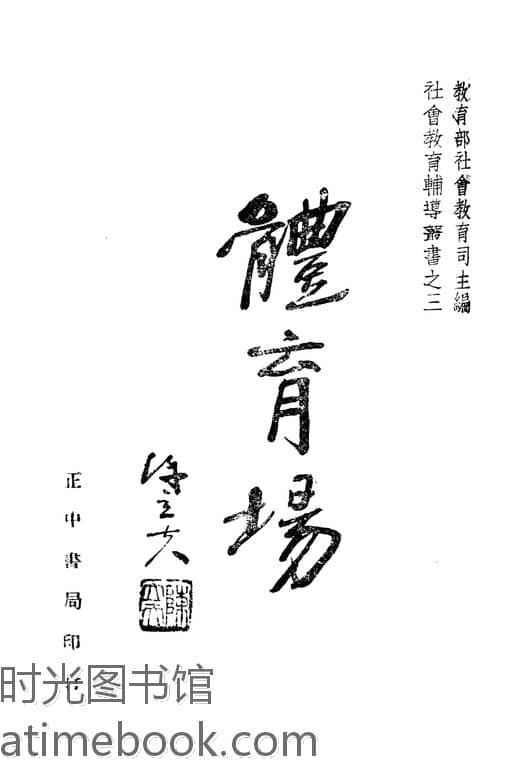 教育部社會教育司主編
社會教育輔導叢書之三
體育場
陳立夫
正中書局印行
时光图书馆
atimebook.com